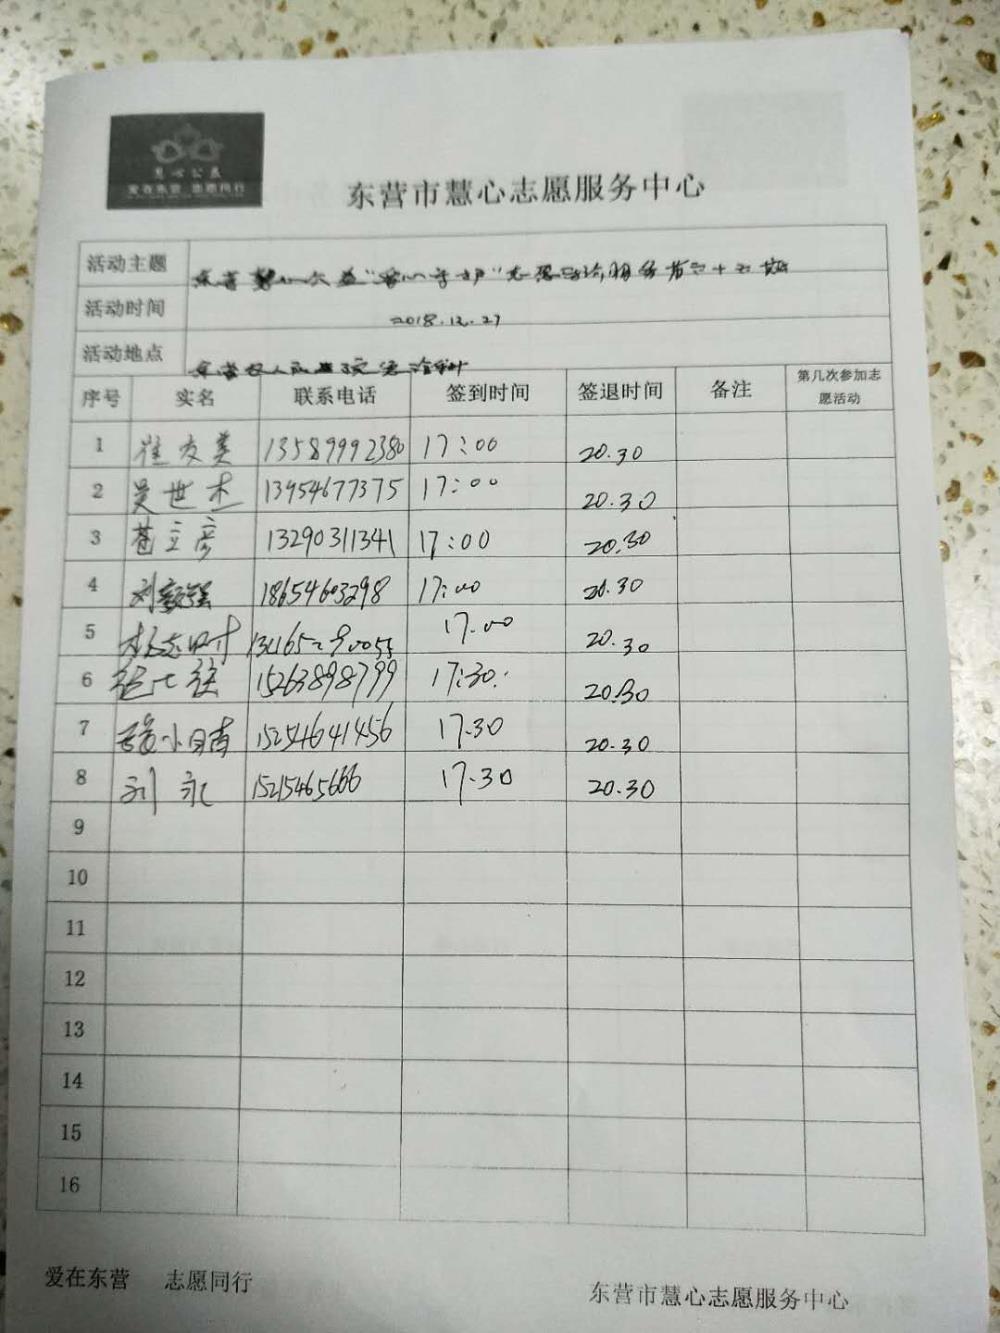 慧心公益
爱在东营 志愿同行
东营市慧心志愿服务中心
活动主题 东营慧心公益“爱心守护”志愿导诊服务第三十五期
活动时间 2018.12.27
活动地点 东营区人民医院急诊科
序号 实名 联系电话 签到时间 签退时间 备注 第几次参加志愿活动
1 崔友美 13589992380 17:00 20.30
2 吴世杰 13954677375 17:00 20.30
3 苍立彦 13290311341 17:00 20.30
4 刘 18654603298 17:00 20.30
5 17.00 20.30
6 15263898799 17:30 20.30
7 15254641456 17.30 20.30
8 刘永 15215465666 17.30 20.30
9
10
11
12
13
14
15
16
爱在东营 志愿同行 东营市慧心志愿服务中心